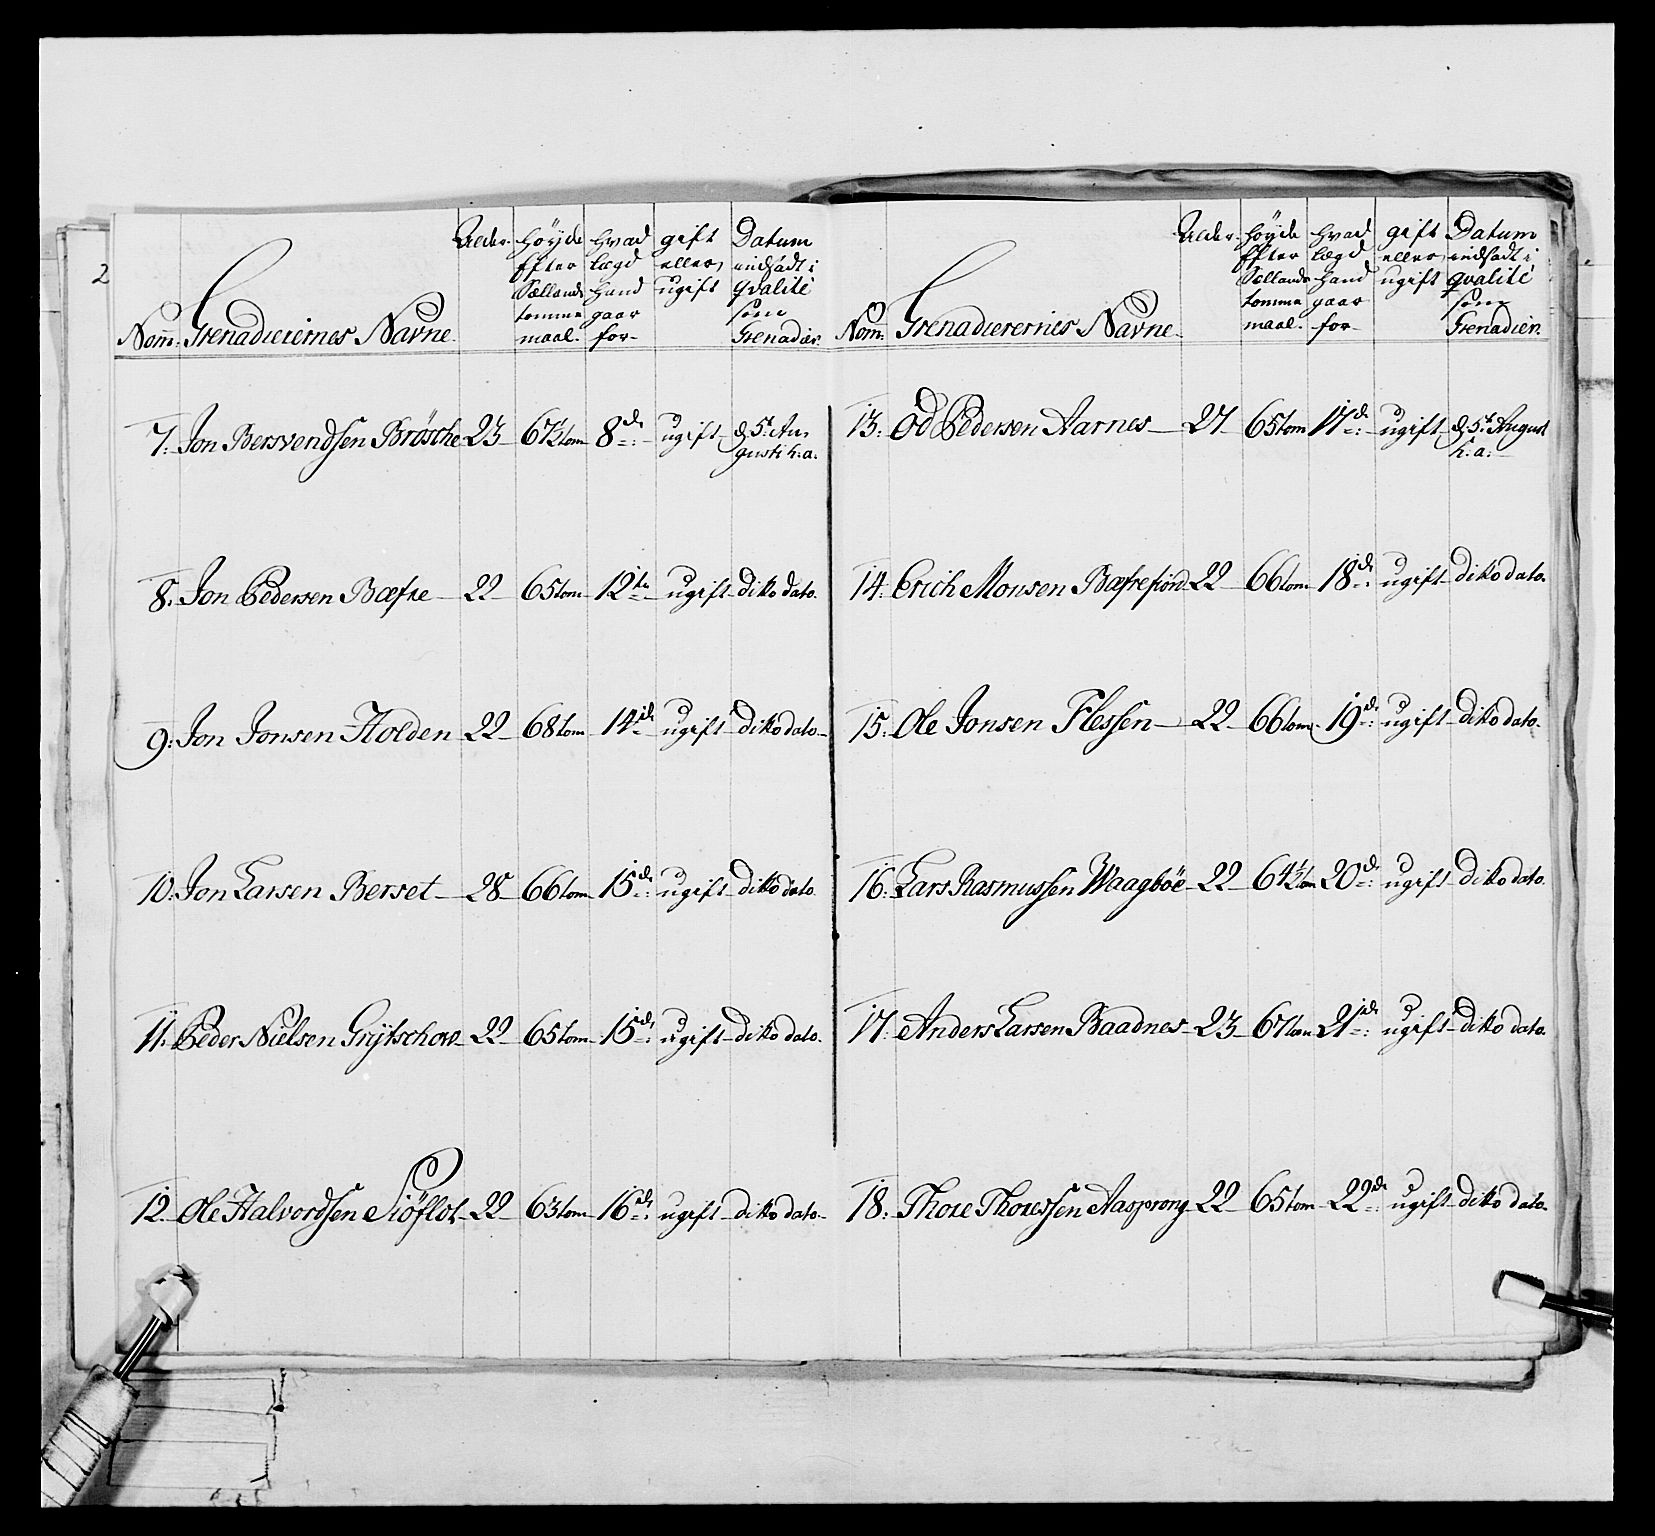 2
Nom: Grenadierernes Navne. Alder. høyde Efter Sællands tomme maal. hvad lægd hand gaar for- gift eller ugift Datum indsadt i qvalité som Grenadier.
7. Jon Bersvendsen Brøsche 23 67½ tom 8de ugift d. 5te Au-
gusti h: a:
8. Jon Pedersen Bæfre 22 65 tom 12te ugift ditto dato.
9. Jon Jonsen Holden 22 68 tom 14de ugift ditto dato
10. Jon Larsen Berset 28 66 tom 15de ugift ditto dato
11. Peder Nielsen Grytschow 22 65 tom 15de ugift ditto dato.
12. Ole Halvordsen Siøflot 22 63 tom 16de ugift ditto dato.
Nom: Grenadierernes Navne. Alder. høyde Efter Sællands tomme maal. hvad lægd hand gaar for- gift eller ugift Datum indsadt i qvalité som Grenadier.
13. Od Pedersen Aarnes 27 65 tom 17de ugift d. 5te August
h: a:
14. Erich Monsen Bæfrefiord 22 66 tom 18de ugift ditto dato.
15. Ole Jonsen Flessen 22 66 tom 19de ugift ditto dato.
16. Lars Rasmussen Waagbøe 22 64½ tom 20de ugift ditto dato.
17. Anders Larsen Baadnes 23 67 tom 21de ugift ditto dato.
18. Thore Thoressen Aasprong 22 65 tom 22de ugift ditto dato.